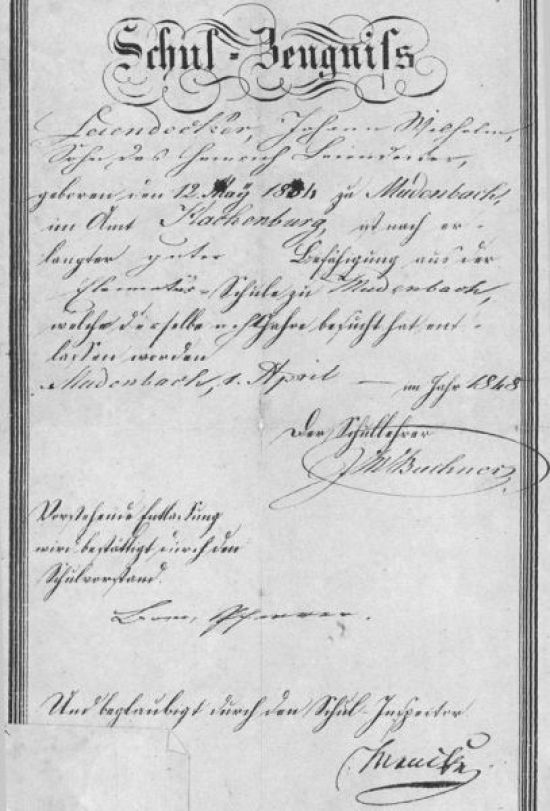 Schul-Zeugniss
Leiendecker, Johann Wilhelm,
Sohn des Heinrich Leiendecker,
geboren den 12. May 1834 zu Mudenbach,
im Amt Hachenburg, ist nach er-
langter guter Befähigung aus der
Elementar-Schule zu Mudenbach,
welche derselbe acht Jahre besucht hat ent-
lassen worden
Mudenbach, 1. April — im Jahr 1848
Der Schullehrer
Buchner
Vorstehende Entlassung
wird bestättigt durch den
Schulvorstand.
Pfarrer.
Und beglaubigt durch den Schul-Inspector